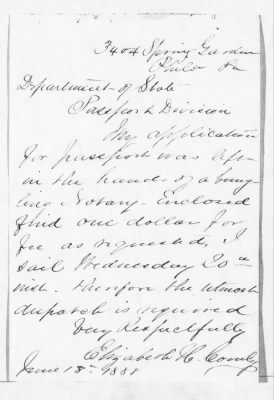 3404 Spring Garden
Phila Pa
Department of State
Passport Division
My application
for passport was left
in the hands of a bung-
ling Notary - Enclosed
find one dollar for
fee as requested, I
sail Wednesday 20th
inst. therefore the utmost
dispatch is required
Very Respectfully
Elizabeth H.
June 18th 1888